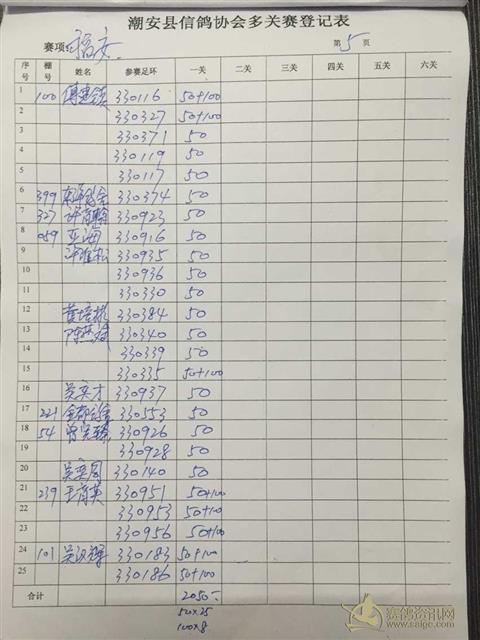 潮安县信鸽协会多关赛登记表
赛项: 福安 第 5 页
序号 棚号 姓名 参赛足环 一关 二关 三关 四关 五关 六关
1 100 330116 50+100
2 330327 50+100
3 330371 50
4 330119 50
5 330117 50
6 399 330374 50
7 327 330923 50
8 059 亚海 330916 50
9 330935 50
10 330936 50
11 330330 50
12 黄培彬 330384 50
13 330340 50
14 330339 50
15 330335 50+100
16 吴奕才 330937 50
17 221 330553 50
18 54 330926 50
19 330928 50
20 吴奕周 330140 50
21 239 330951 50+100
22 330953 50+100
23 330956 50+100
24 101 330183 50+100
25 330186 50+100
合计 2050.-
50×25
100×8
赛鸽资讯网
www.saige.com